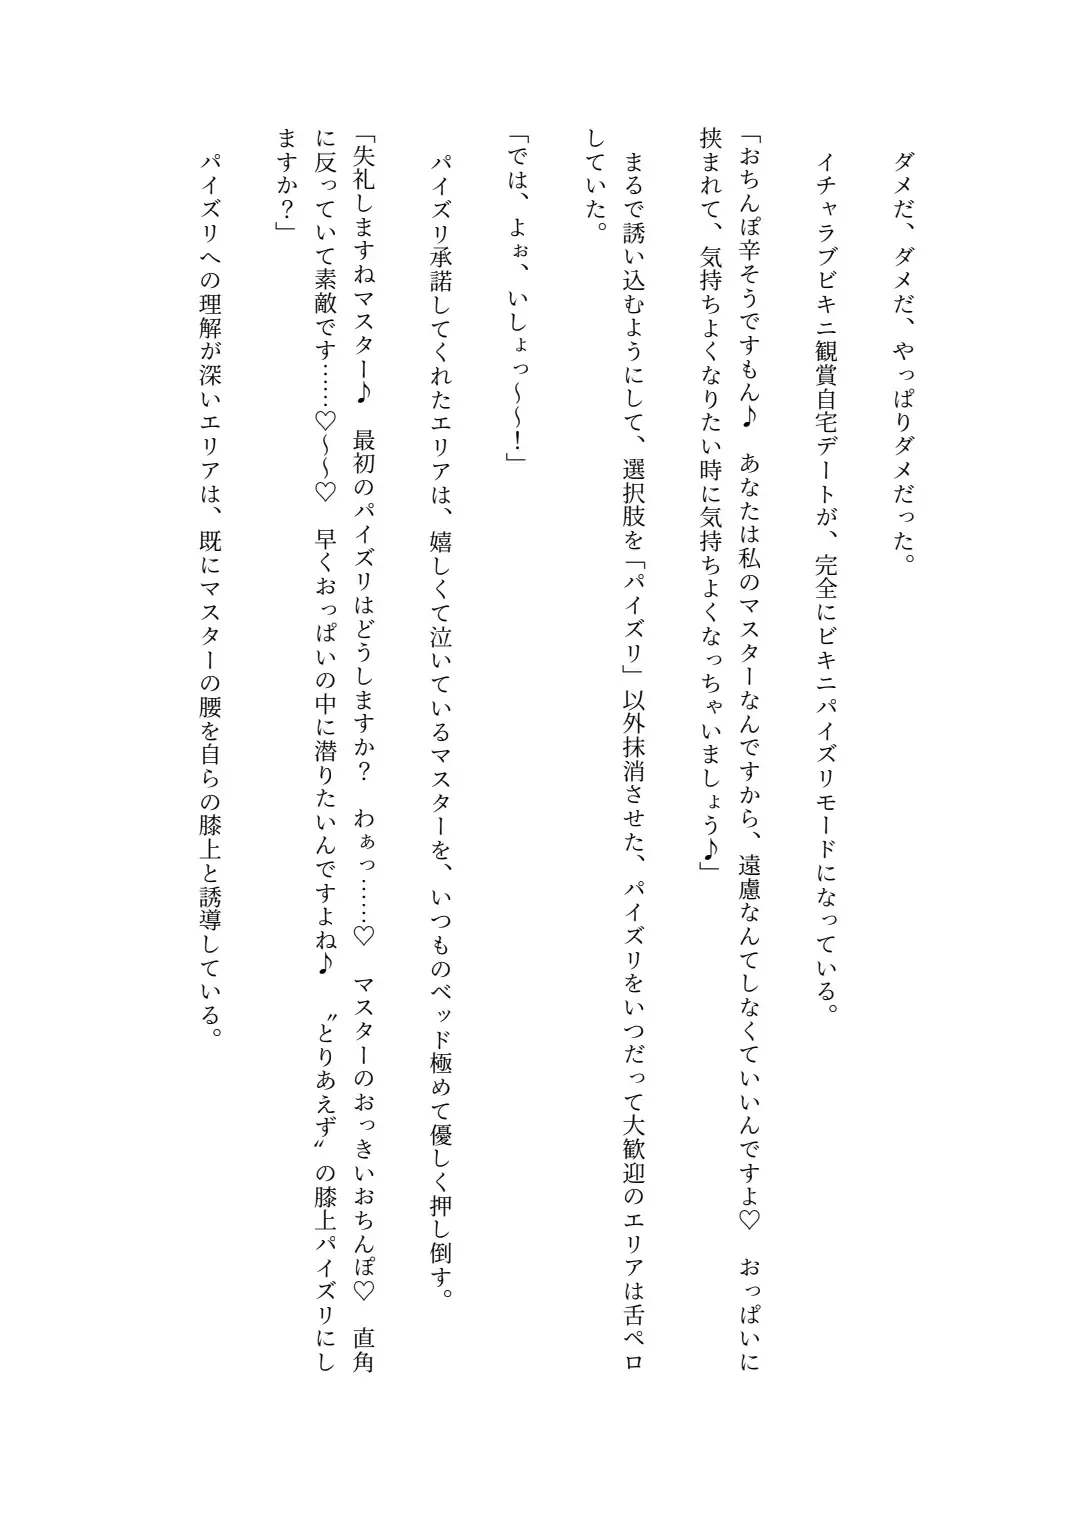 ダメだ、ダメだ、やっぱりダメだった。
イチャラブビキニ観賞自宅デートが、完全にビキニパイズリモードになっている。
「おちんぽ辛そうですもん♪　あなたは私のマスターなんですから、遠慮なんてしなくていいんですよ♡　おっぱいに
挟まれて、気持ちよくなりたい時に気持ちよくなっちゃいましょう♪」
まるで誘い込むようにして、選択肢を「パイズリ」以外抹消させた、パイズリをいつだって大歓迎のエリアは舌ペロ
していた。
「では、よぉ、いしょっ～～！」
パイズリ承諾してくれたエリアは、嬉しくて泣いているマスターを、いつものベッド極めて優しく押し倒す。
「失礼しますねマスター♪　最初のパイズリはどうしますか？　わぁっ……♡　マスターのおっきいおちんぽ♡　直角
に反っていて素敵です……♡～～♡　早くおっぱいの中に潜りたいんですよね♪　〝とりあえず〟の膝上パイズリにし
ますか？」
パイズリへの理解が深いエリアは、既にマスターの腰を自らの膝上と誘導している。